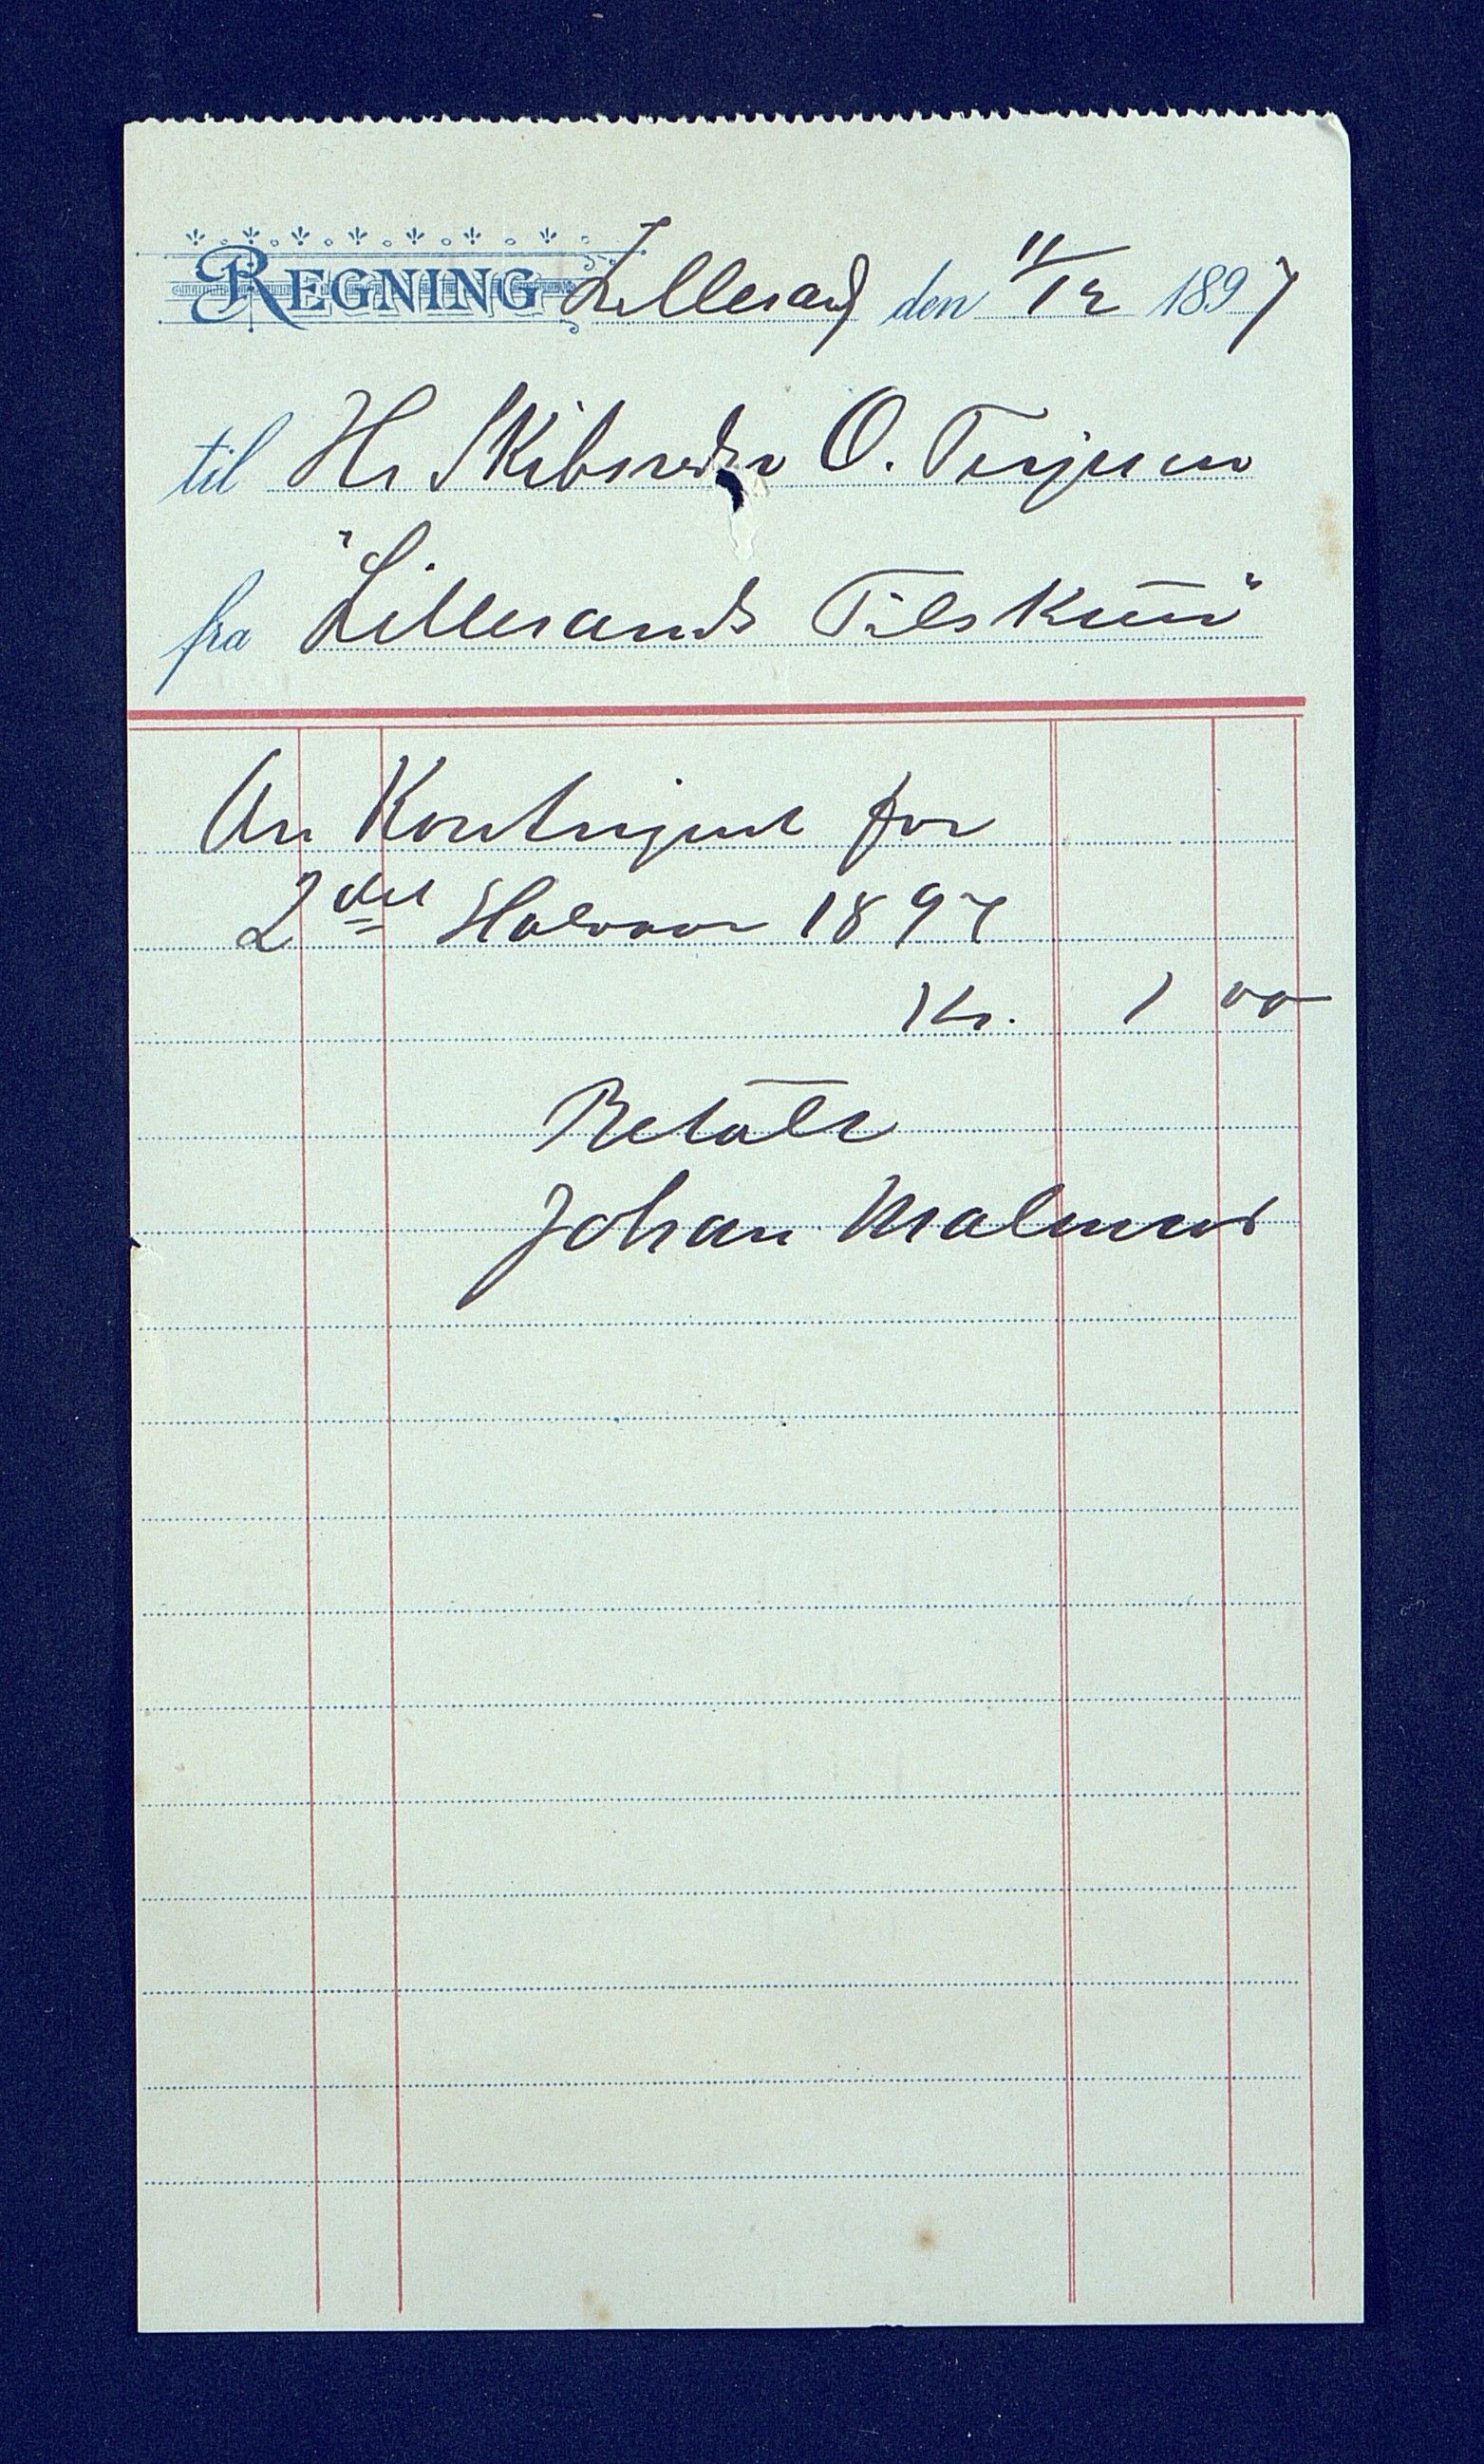 REGNING Lillesand den 11/12 1897
til Hr Skibsreder O. Terjesen
fra "Lillesands Tilskuer"
An Kontingent for
2det Halvaar 1897
Kr. 1 00
Betalt
Johan